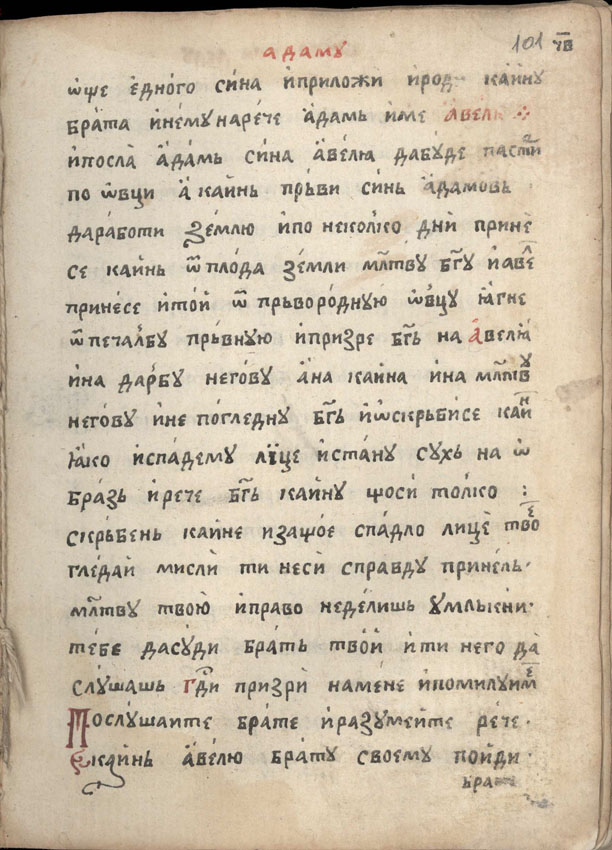 адаму
101 ч҃в
ѡще е҆дно́го си́на и҆приложи и҆род каи́ну
бра́та и҆нему́ наре́че а҆да́мь и҆ме а҆ве́ль ⁘
и҆посла̀ а҆да́мь си́на а҆ве́лꙗ дабу́де пасти́
по ѡ҆вци а҆ каи́нь прь́ви си́нь а҆да́мовь
дарабо́ти зе́млю и҆по неко́лко дни́ прине́
се каи́нь ѿ пло́да зе́мли мл҃тву бг҃у и҆аве́л
прине́се и҆то́и ѿ прьворо́дную ѡ҆вцу ꙗ҆гне
ѿ печа́лбу прь́вную и҆призре бг҃ь на а҆ве́лꙗ
и҆на да́рбу него́ву а҆на каи́на и҆на мл҃тву
него́ву и҆не по́гледну бг҃ь и҆ѡ҆скрьби́се каи́н
ꙗ҆ко и҆спа́дему ли́це и҆ста́ну су́хь на ѡ҆
бра́зь и҆рече́ бг҃ь каи́ну що́си то́лко :
скрь́бень каи́не изащо́е спа́дло лице́ тво́е
гле́даи ми́сли ти не́си спра́вду прине́ль·
мл҃тву твою̀ и҆право неде́лишь у҆млькни·
те́бе да́суди бра́ть тво́и и҆ти него да́
слу́шашь гд҃и призрѝ на ме́не и҆поми́луиме
По́слушаите бра́те и҆разуме́ите ре́че·
каи́нь а҆ве́лю бра́ту своему по́иди·